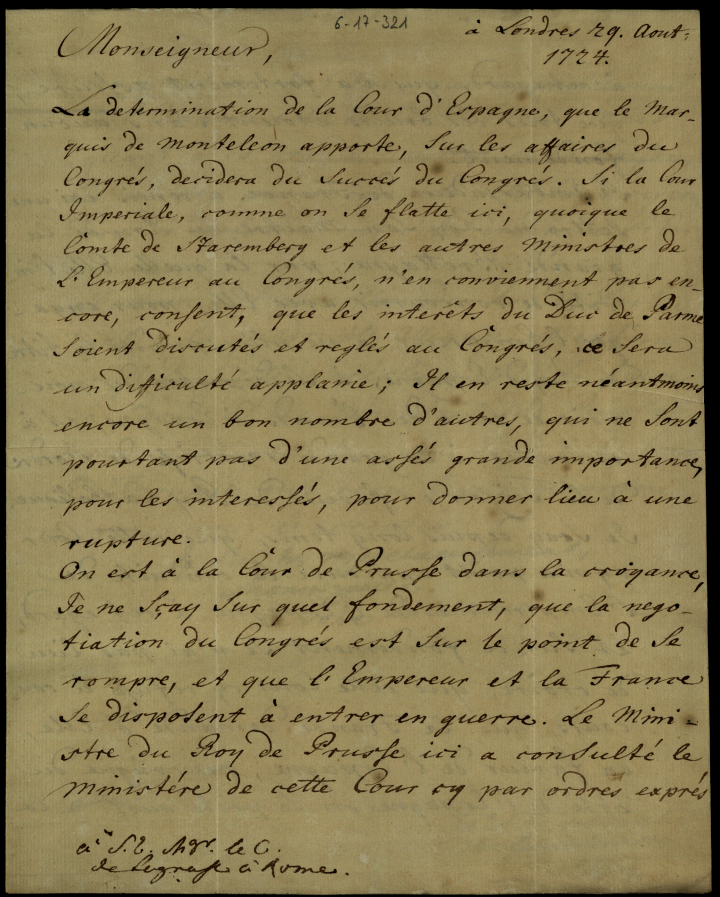 6-17-321
à Londres 29. Aout.
1724.
Monseigneur,
La determination de la Cour d'Espagne, que le Mar-
quis de Monteleon apporte, sur les affaires du
Congrés, decidera du Succés du Congrés. Si la Cour
Imperiale, comme on se flatte ici, quoique le
Comte de Staremberg et les autres Ministres de
L'Empereur au Congrés, n'en conviennent pas en-
core, consent, que les interêts du Duc de Parme
soient discutés et reglés au Congrés, ce sera
un difficulté applanie; Il en reste néantmoins
encore un bon nombre d'autres, qui ne sont
pourtant pas d'une assés grande importance,
pour les interessés, pour donner lieu à une
rupture.
On est à la Cour de Prusse dans la croyance,
Je ne sçay sur quel fondement, que la nego-
tiation du Congrés est sur le point de se
rompre, et que l'Empereur et la France
se disposent à entrer en guerre. Le Mini-
stre du Roy de Prusse ici a consulté le
Ministére de cette Cour cy par ordres exprés
à S. E. Mgr. le C.
de à Rome.